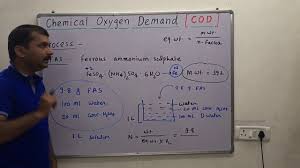 Chemical Oxygen Demand [COD]
PROCESS -
eq.wt. = m.wt. / n-factor
FAS - ferrous ammonium sulphate
FeSO4 (NH4)2SO4 . 6H2O
m.wt = 392
9.8 g FAS
100 ml water
20 ml conc. H2SO4
1 L solution
9.8 g FAS
water
20 ml conc. H2SO4
1 L
N = wt. / eq.wt x VL = 9.8